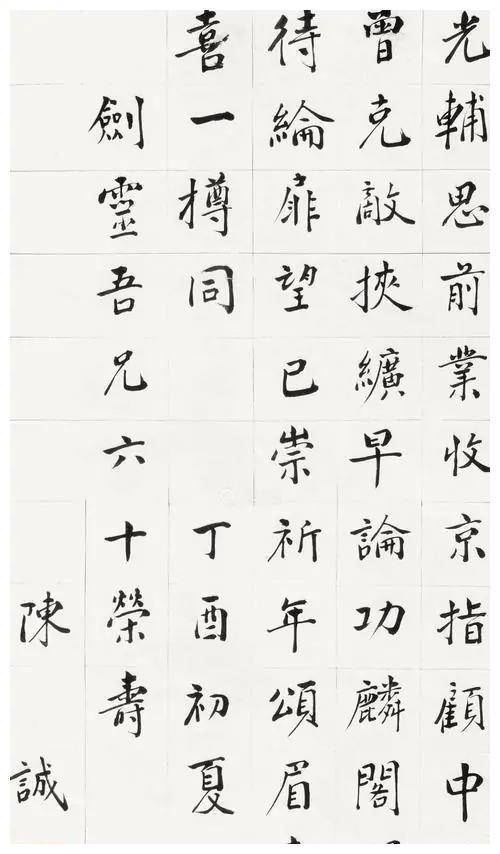 光輔思前業收京指顧中
曾克敵挾纊早論功麟閣
待綸扉望已崇祈年頌眉
喜一樽同
丁酉初夏
劍靈吾兄六十榮壽
陳誠